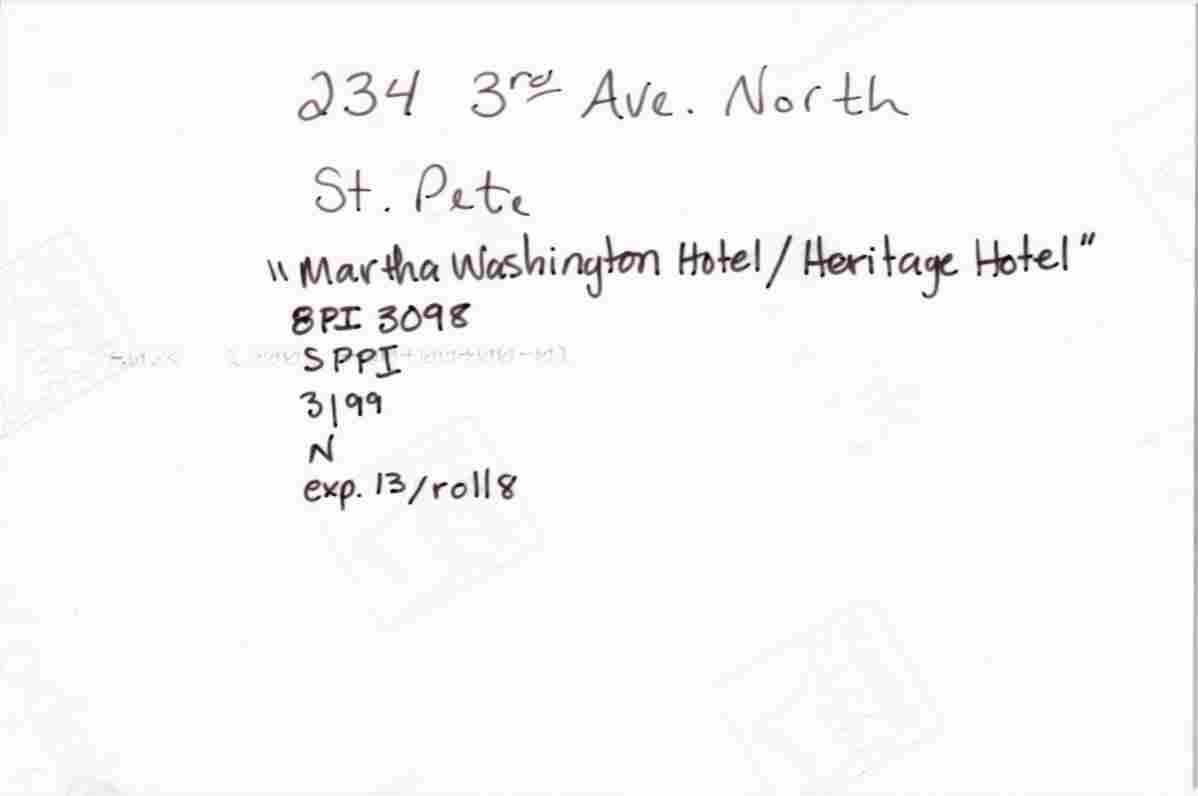 234 3rd Ave. North
St. Pete
"Martha Washington Hotel/Heritage Hotel"
8PI 3098
SPPI
3/99
N
exp. 13/roll 8